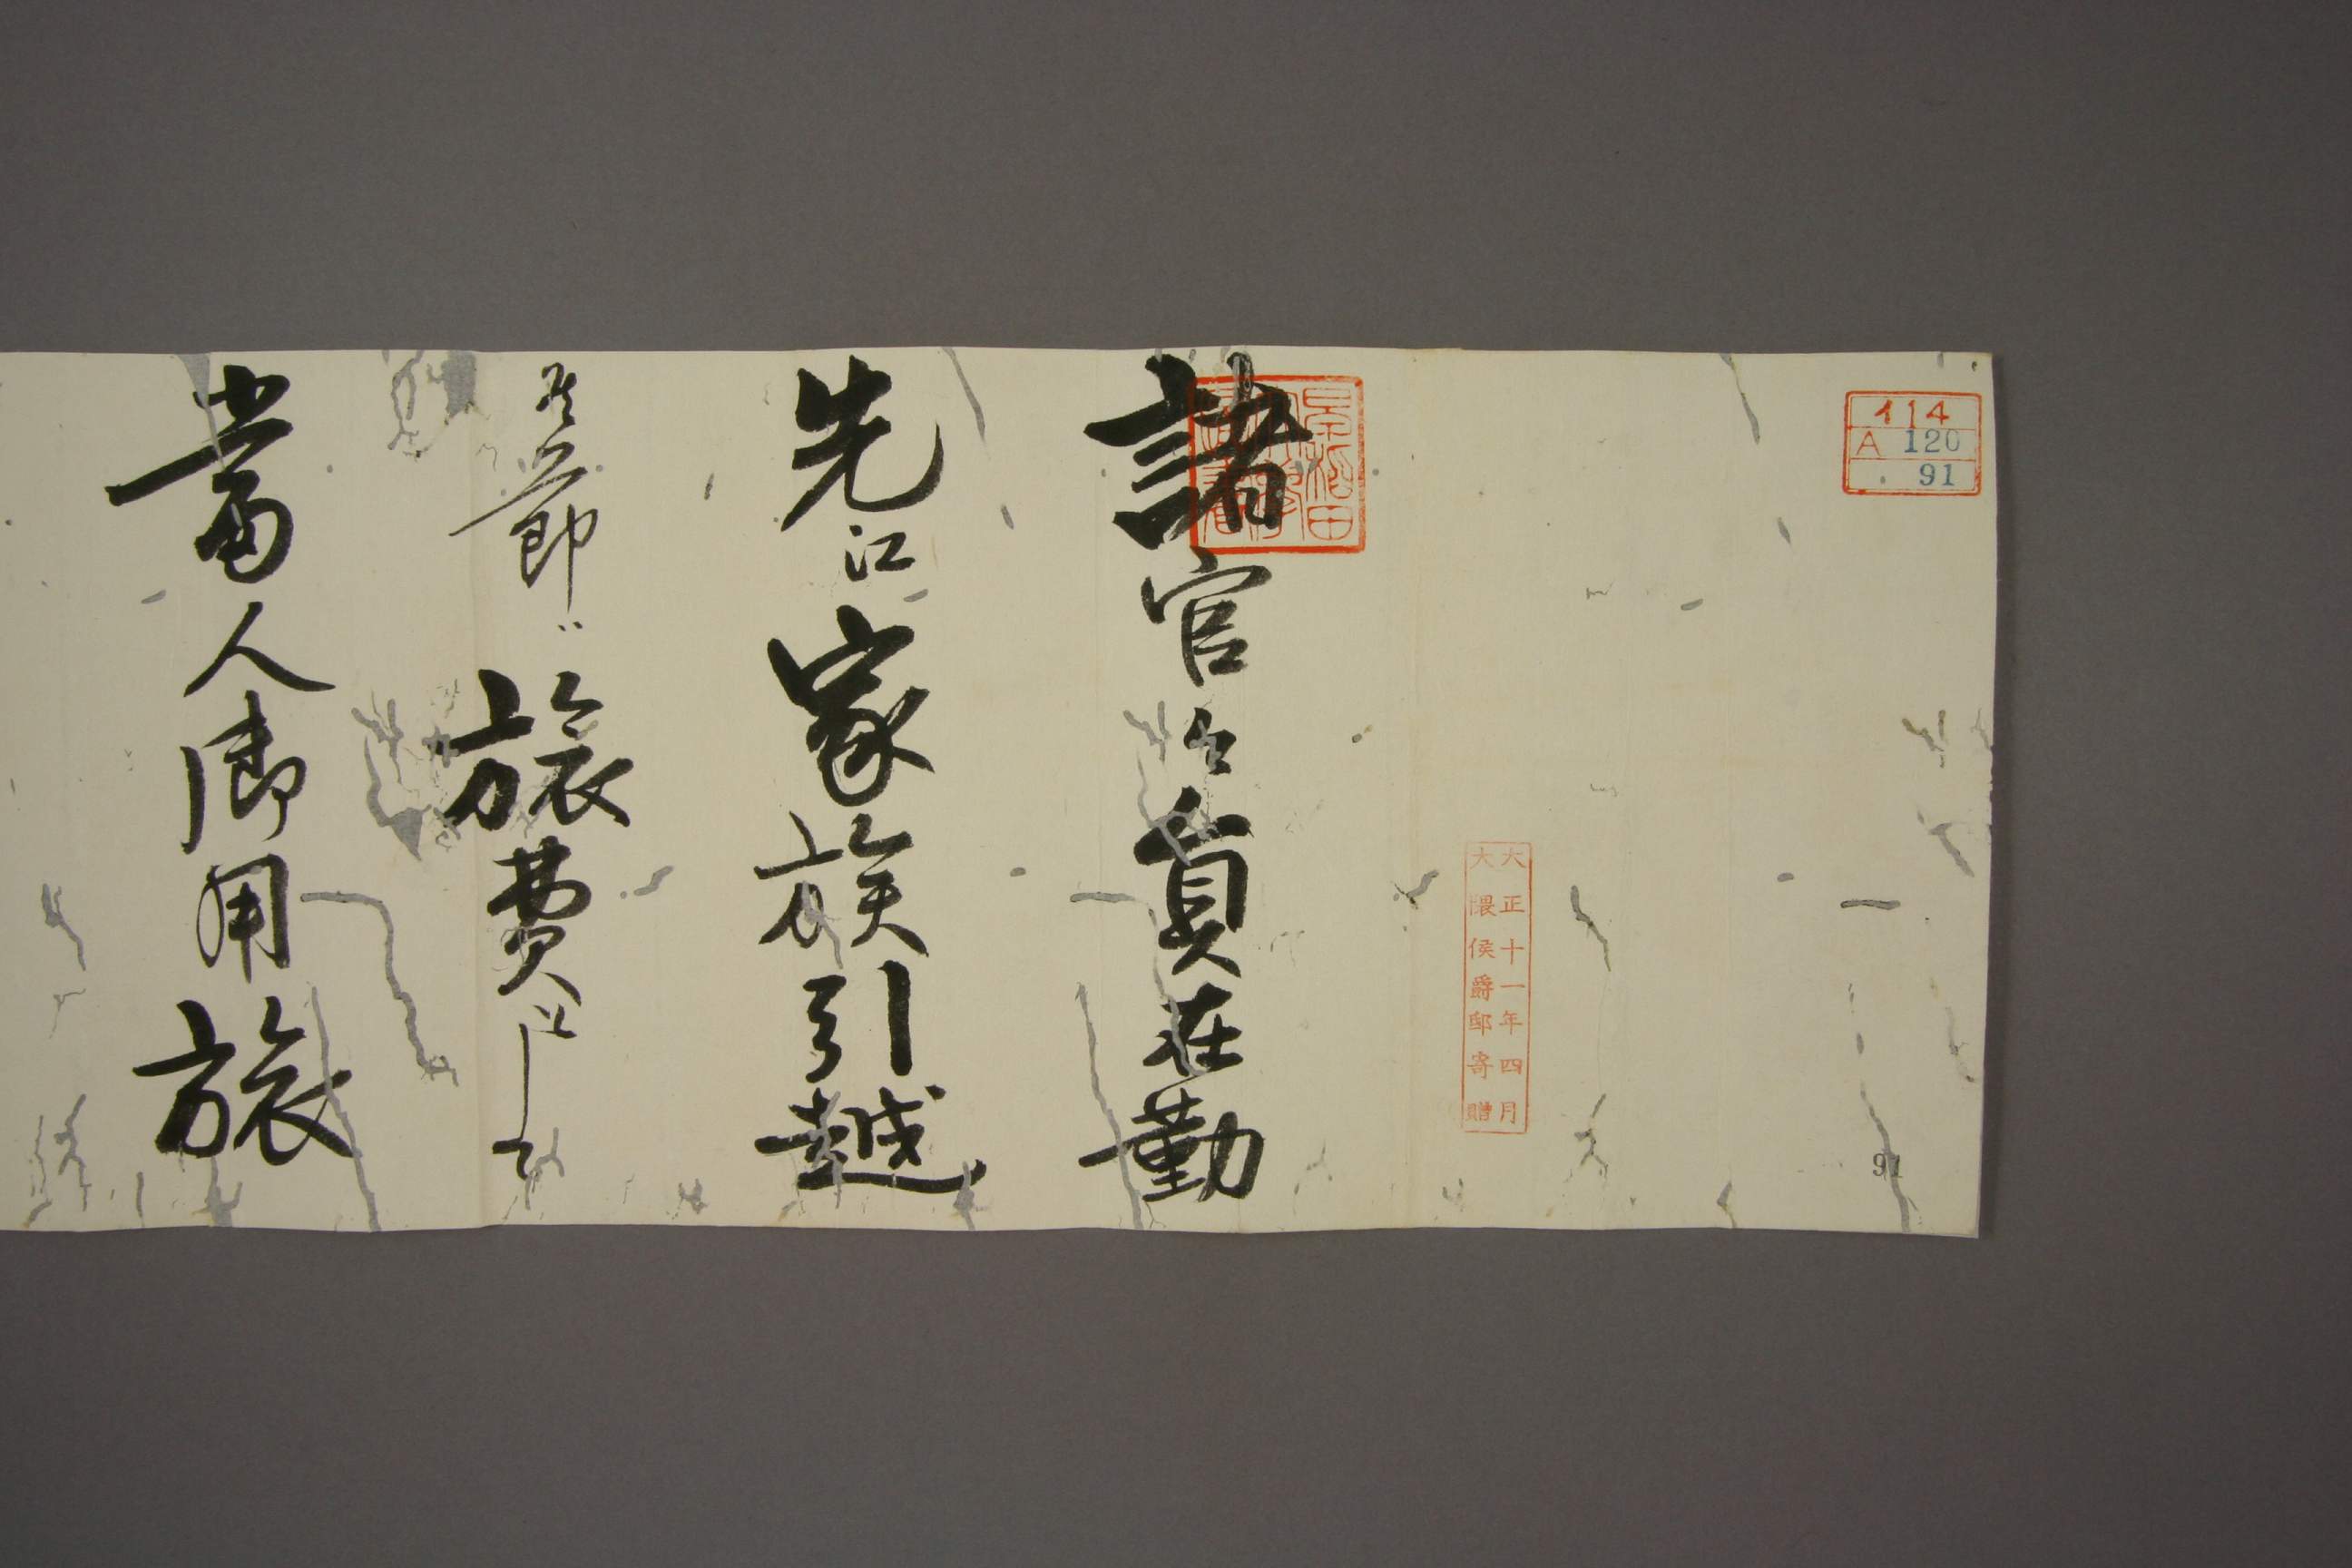 イ14
A 120
91
大正十一年四月
大隈侯爵邸寄贈
91
諸官省員在勤
先江家族引越
候節〻旅費
當人御用旅